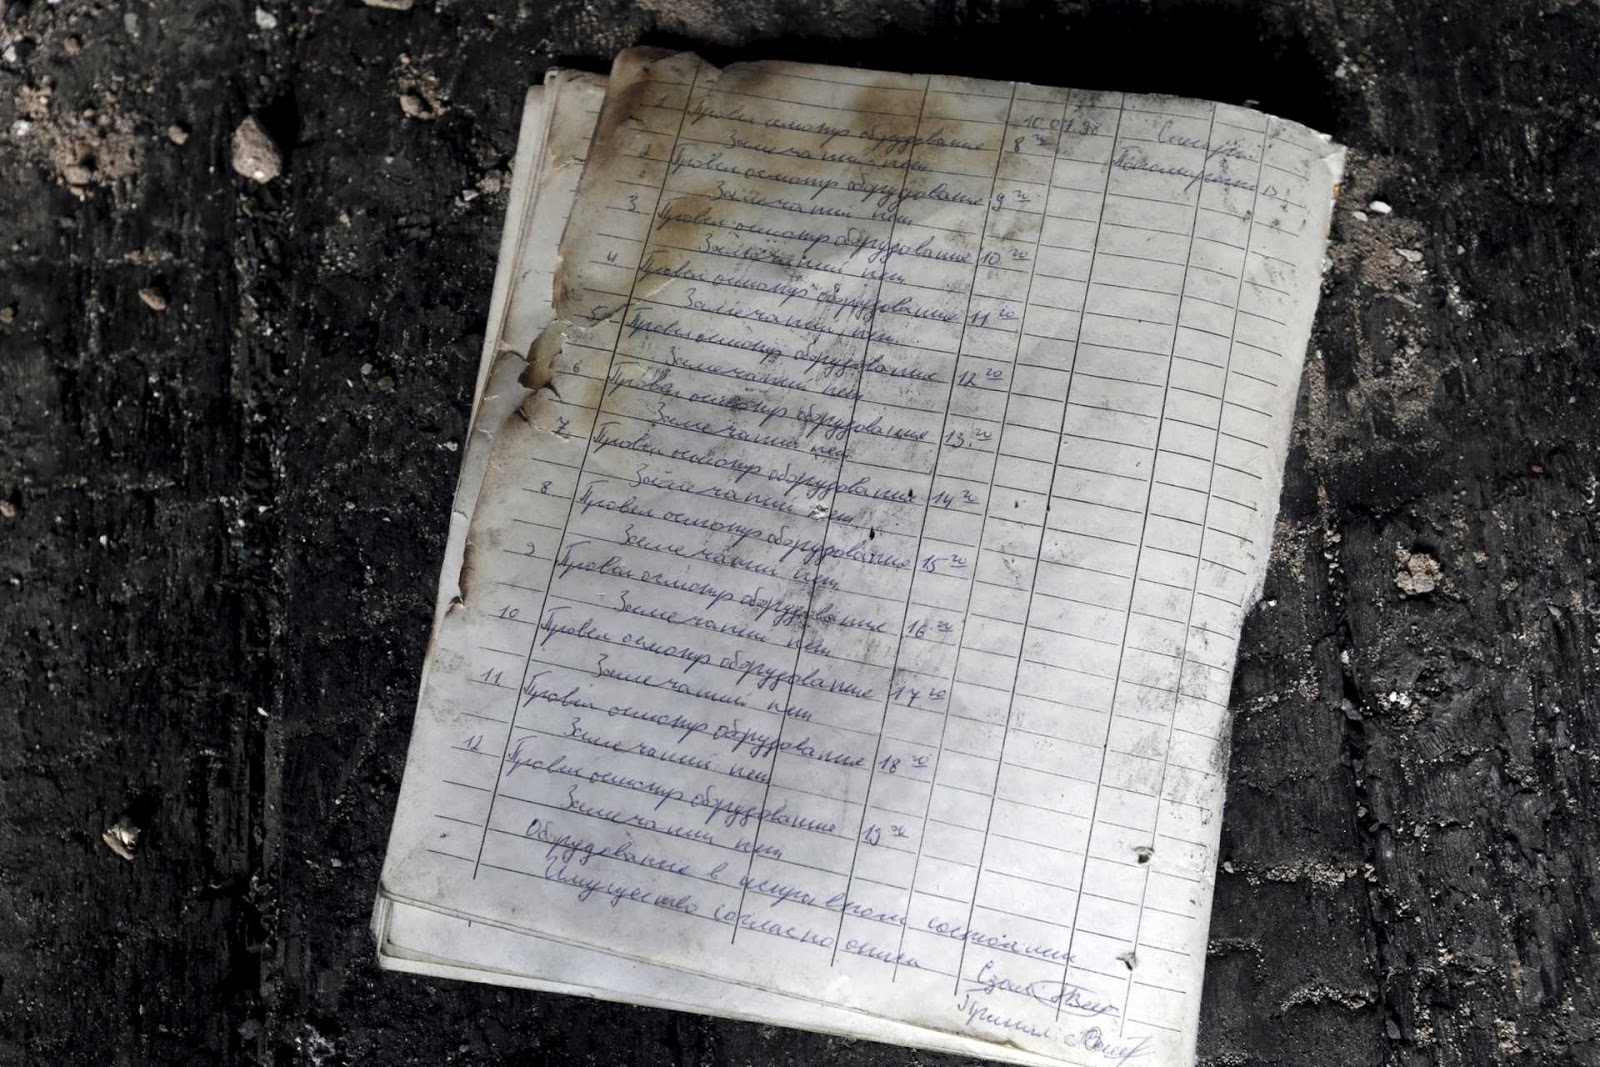 1 Провел осмотр оборудования 10.07.98
Замечаний нет 8 20
2 Провел осмотр оборудования 9 20
Замечаний нет
3 Провел осмотр оборудования 10 20
Замечаний нет
4 Провел осмотр оборудования 11 20
Замечаний нет
5 Провел осмотр оборудования 12 20
Замечаний нет
6 Провел осмотр оборудования 13 20
Замечаний нет
7 Провел осмотр оборудования 14 20
Замечаний нет
8 Провел осмотр оборудования 15 20
Замечаний нет
9 Провел осмотр оборудования 16 20
Замечаний нет
10 Провел осмотр оборудования 17 20
Замечаний нет
11 Провел осмотр оборудования 18 20
Замечаний нет
12 Провел осмотр оборудования 19 20
Замечаний нет
Оборудование в исправном состоянии
Имущество согласно описи
Сдал
Принял: